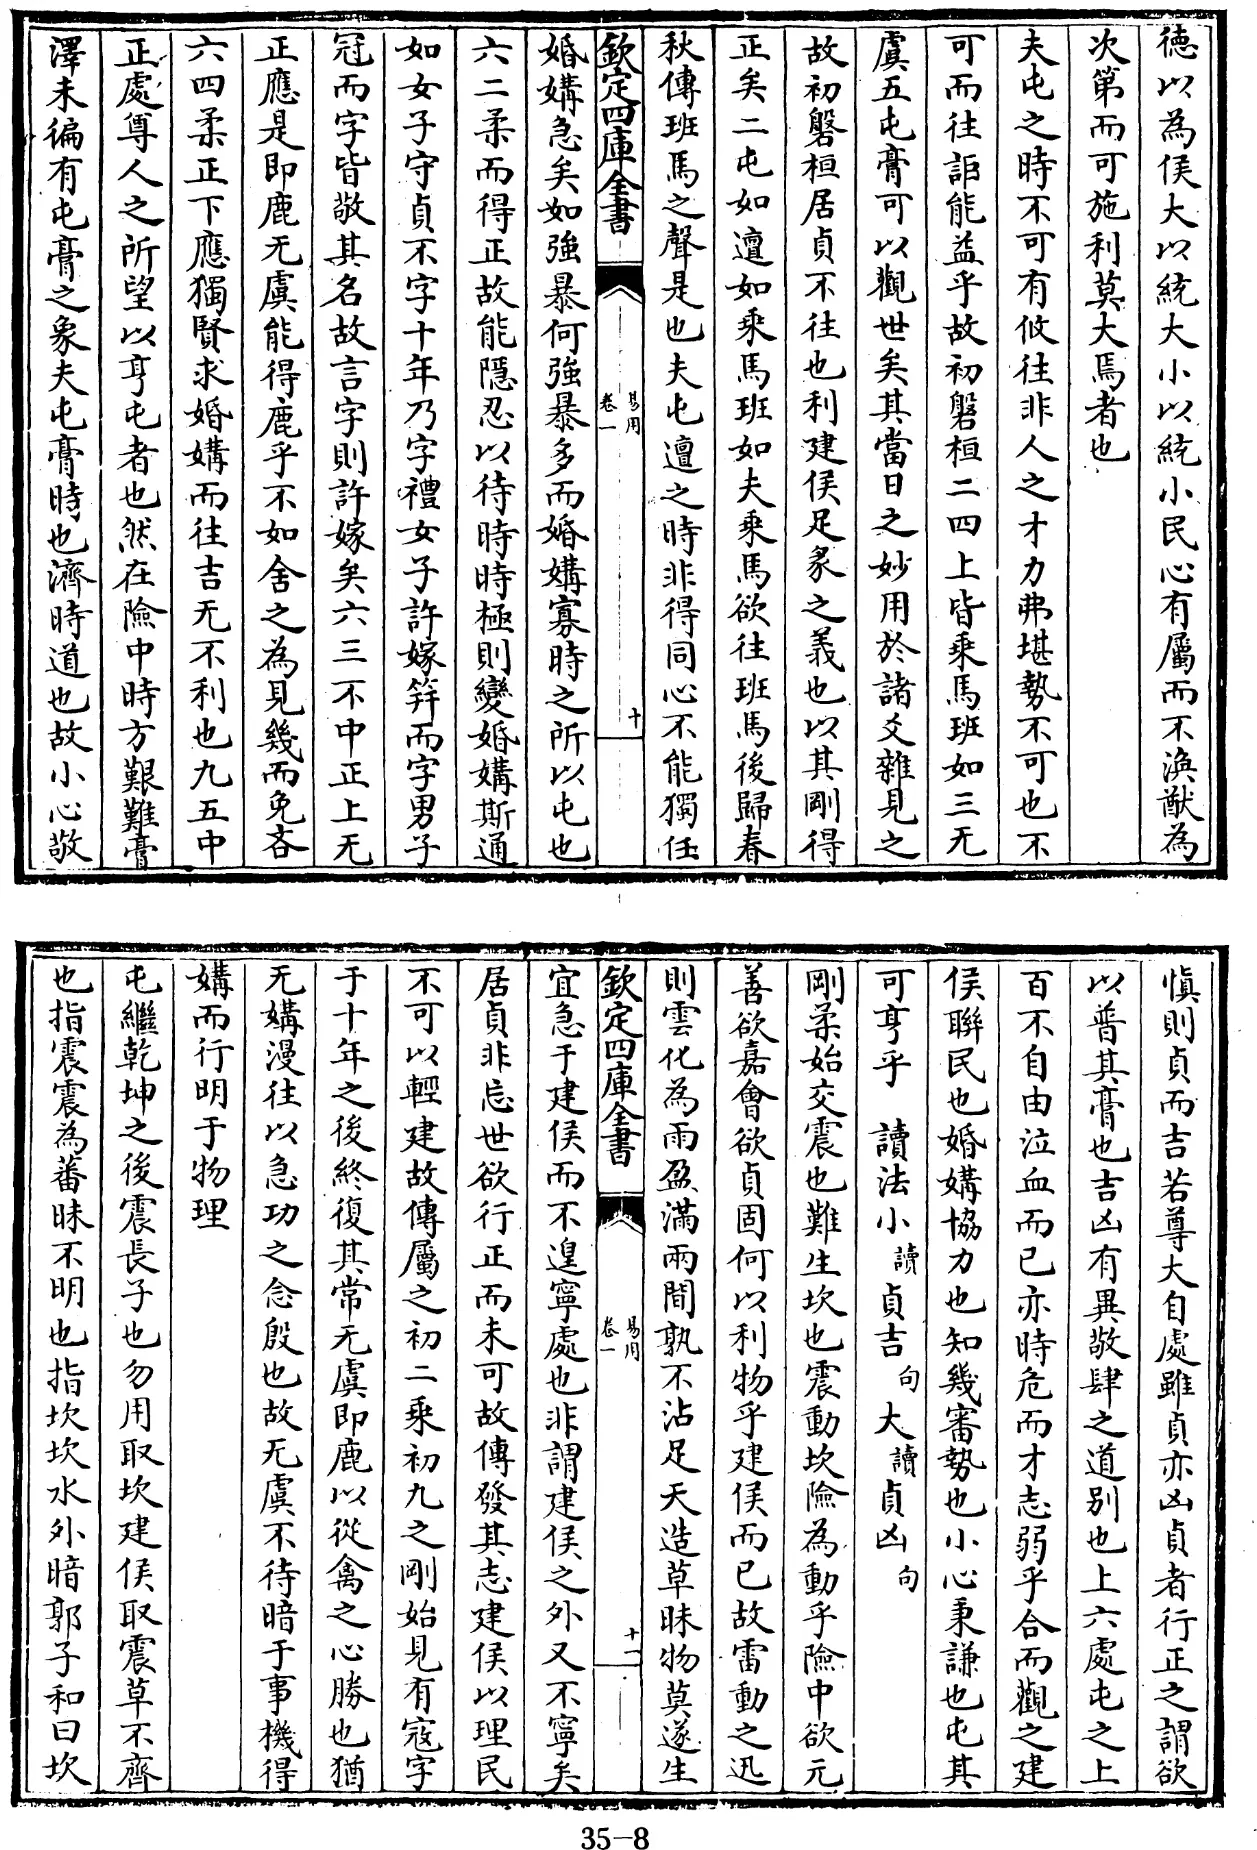 德以為侯大以統大小以統小民心有屬而不渙猷為
次第而可施利莫大焉者也
夫屯之時不可有攸往非人之才力弗堪勢不可也不
可而往詎能益乎故初磐桓二四上皆乘馬班如三无
虞五屯膏可以觀世矣其當日之妙用於諸爻雜見之
故初磐桓居貞不往也利建侯足彖之義也以其剛得
正矣二屯如邅如乘馬班如夫乘馬欲往班馬後歸春
秋傳班馬之聲是也夫屯邅之時非得同心不能獨任
欽定四庫全書
易用
卷一
十
婚媾急矣如強暴何強暴多而婚媾寡時之所以屯也
六二柔而得正故能隱忍以待時時極則變婚媾斯通
如女子守貞不字十年乃字禮女子許嫁笄而字男子
冠而字皆敬其名故言字則許嫁矣六三不中正上无
正應是即鹿无虞能得鹿乎不如舍之為見幾而免吝
六四柔正下應獨賢求婚媾而往吉无不利也九五中
正處尊人之所望以亨屯者也然在險中時方艱難膏
澤未徧有屯膏之象夫屯膏時也濟時道也故小心敬
慎則貞而吉若尊大自處雖貞亦凶貞者行正之謂欲
以普其膏也吉凶有異敬肆之道別也上六處屯之上
百不自由泣血而已亦時危而才志弱乎合而觀之建
侯聯民也婚媾協力也知幾審勢也小心秉謙也屯其
可亨乎 讀法小讀貞吉句大讀貞凶句
剛柔始交震也難生坎也震動坎險為動乎險中欲元
善欲嘉會欲貞固何以利物乎建侯而已故雷動之迅
則雲化為雨盈滿兩間孰不沾足天造草昧物莫遂生
欽定四庫全書
易用
卷一
十一
宜急于建侯而不遑寧處也非謂建侯之外又不寧矣
居貞非忘世欲行正而未可故傳發其志建侯以理民
不可以輕建故傳屬之初二乘初九之剛始見有寇字
于十年之後終復其常无虞即鹿以從禽之心勝也猶
无媾漫往以急功之念殷也故无虞不待暗于事機得
媾而行明于物理
屯繼乾坤之後震長子也勿用取坎建侯取震草不齊
也指震震為蕃昧不明也指坎坎水外暗郭子和曰坎
35-8